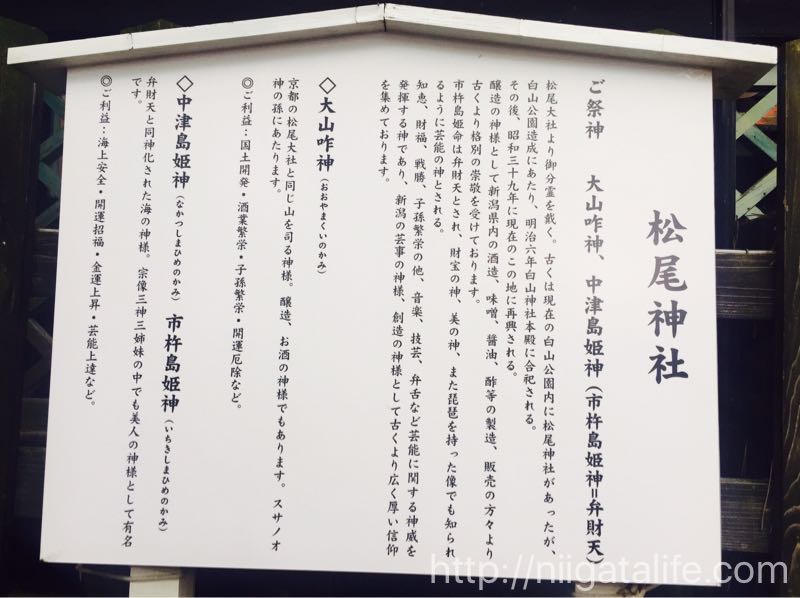 松尾神社
ご祭神　大山咋神、中津島姫神（市杵島姫神＝弁財天）
松尾大社より御分霊を戴く。古くは現在の白山公園内に松尾神社があったが、
白山公園造成にあたり、明治六年白山神社本殿に合祀される。
その後、昭和三十九年に現在のこの地に再興される。
醸造の神様として新潟県内の酒造、味噌、醤油、酢等の製造、販売の方々より
古くより格別の崇敬を受けております。
市杵島姫命は弁財天とされ、財宝の神、美の神、また琵琶を持った像でも知られ
るように芸能の神とされる。
知恵、財福、戦勝、子孫繁栄の他、音楽、技芸、弁舌など芸能に関する神威を
発揮する神であり、新潟の芸事の神様、創造の神様として古くより広く厚い信仰
を集めております。
◇大山咋神（おおやまくいのかみ）
京都の松尾大社と同じ山を司る神様。醸造、お酒の神様でもあります。スサノオ
神の孫にあたります。
◎ご利益：国土開発・酒業繁栄・子孫繁栄・開運厄除など。
◇中津島姫神（なかつしまひめのかみ）市杵島姫神（いちきしまひめのかみ）
弁財天と同神化された海の神様。宗像三神三姉妹の中でも美人の神様として有名
です。
◎ご利益：海上安全・開運招福・金運上昇・芸能上達など。
http://niigatalife.com/